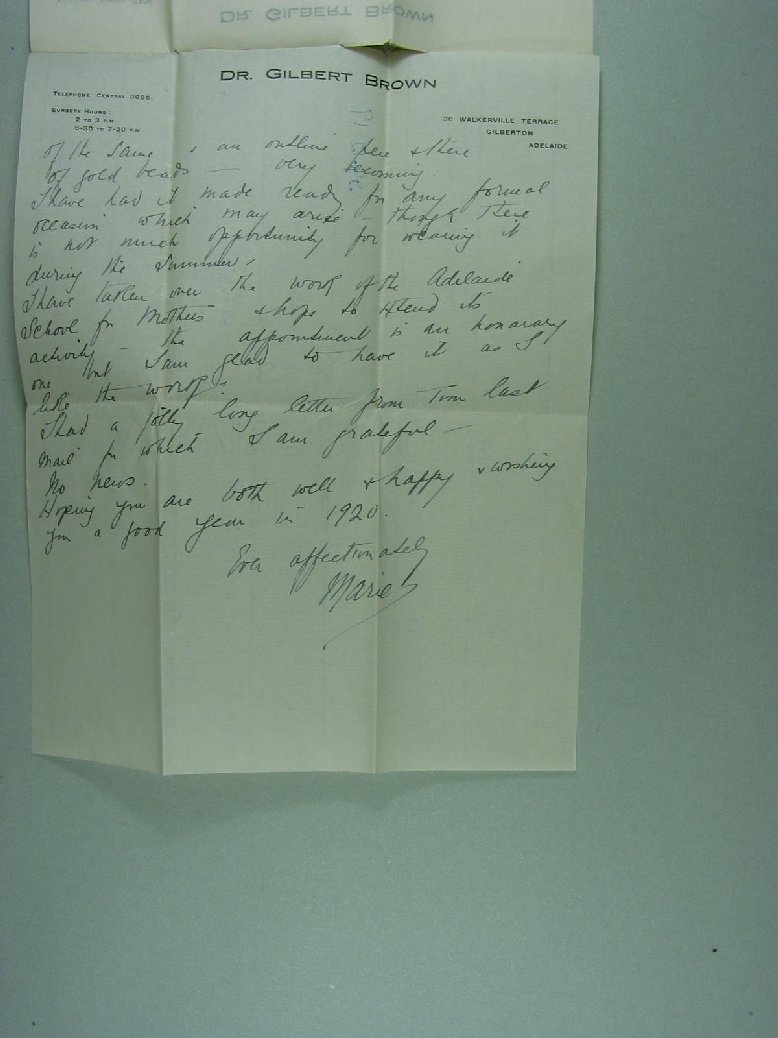 DR. GILBERT BROWN
TELEPHONE, CENTRAL
SURGERY HOURS:
2 TO 3 P.M.
6-30 TO 7-30 P.M.
36 WALKERVILLE TERRACE
GILBERTON
ADELAIDE
of the same & an outline here & there
of gold beads — very becoming
I have had it made ready for any formal
occasion which may arise — though there
is not much opportunity for wearing it
during the summer.
I have taken over the work of the Adelaide
School for Mothers & hope to extend its
activity — the appointment is an honorary
one but I am glad to have it as I
like the work.
I had a jolly long letter from Tom last
mail for which I am grateful —
No news.
Hoping you are both well & happy & wishing
you a good year in 1920.
Ever affectionately
Marie